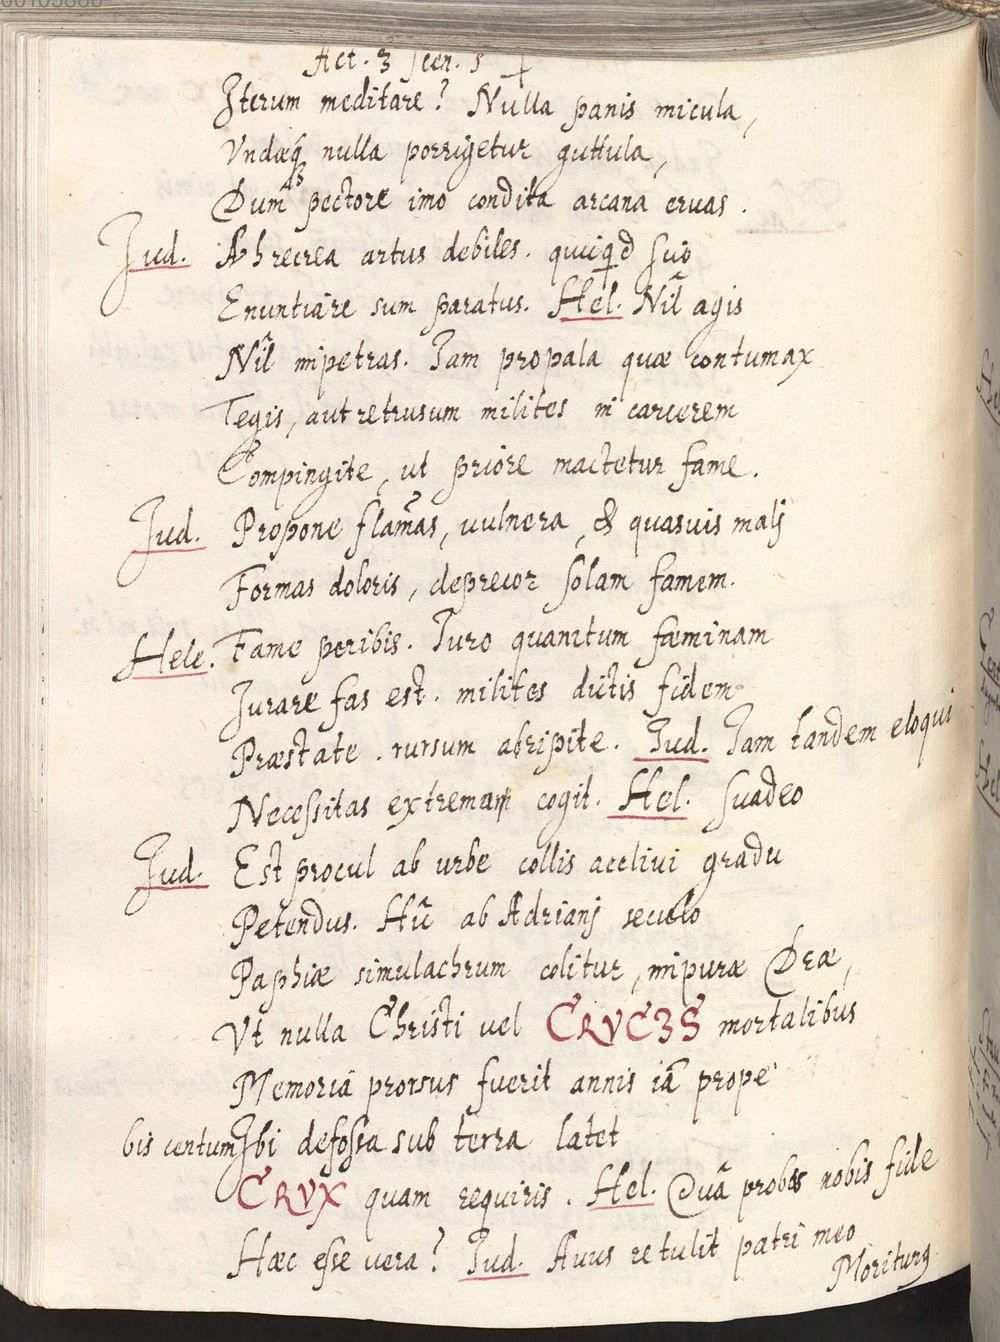 Act. 3 scen. 5
Iterum meditare? Nulla panis micula,
Vndæq́ nulla porrigetur guttula,
Dum pectore imo condita arcana eruas.
Jud. Ah recrea artus debiles. quicqd scio
Enuntiare sum paratus. Hel. Nil̃ agis
Nil̃ impetras. Iam propala quæ contumax
Tegis, aut retrusum milites in carcerem
Compingite, ut priore mactetur fame.
Jud. Propone flam̃as, vulnera, & quasuis malj
Formas doloris, deprecor solam famem.
Hele. Fame peribis. Iuro quantum fæminam
Jurare fas est. milites dictis fidem
Præstate. rursum abripite. Jud. Iam tandem eloqui
Necessitas extrema cogit. Hel. Suadeo
Jud. Est procul ab urbe collis acclivi gradu
Petendus. Hũc ab Adrianj seculo
Paphiæ simulachrum colitur, impuræ Deæ,
Vt nulla Christi vel CRVCIS mortalibus
Memoria prorsus fuerit annis iã prope
bis centum Ibi defossa sub terra latet
CRVX quam requiris. Hel. Quã probas nobis fide
Hæc esse vera? Jud. Auus retulit patri meo
Moriturꝰ